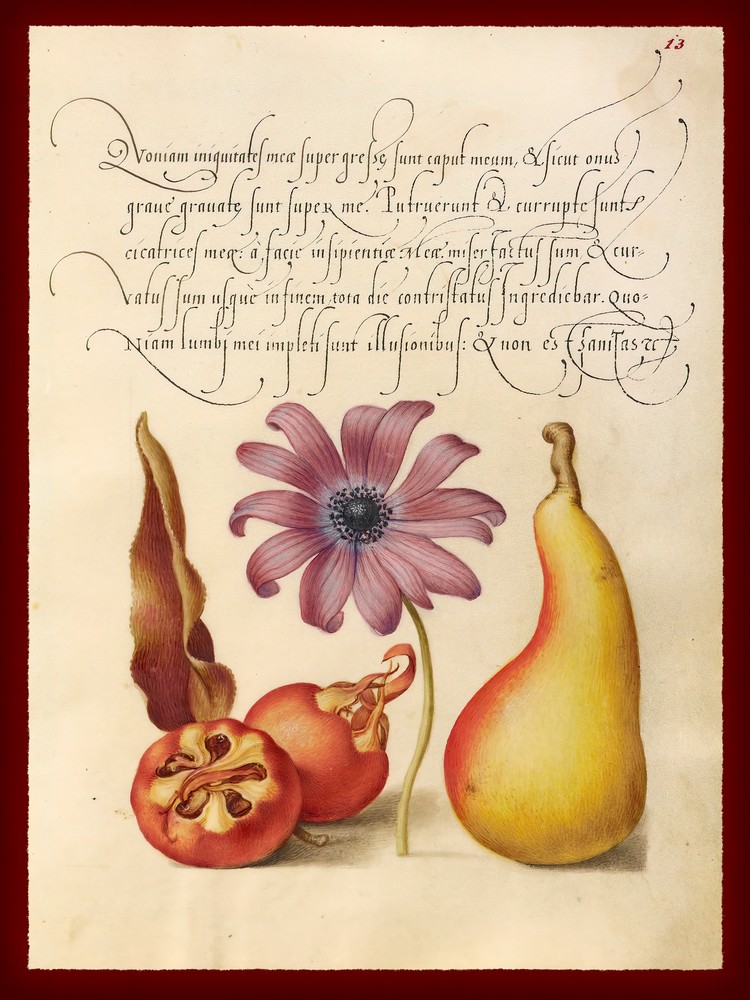 13
Quoniam iniquitates meæ supergressę sunt caput meum, & sicut onus
graue grauatę sunt super me. Putruerunt & currupte sunt
cicatrices meæ: à facie insipientiæ Meæ. miser factus sum, & cur=
vatus sum usquè in finem, tota die contristatus Ingrediebar. Quo=
Niam lumbi mei impleti sunt illusionibus: & non est sanitas &c